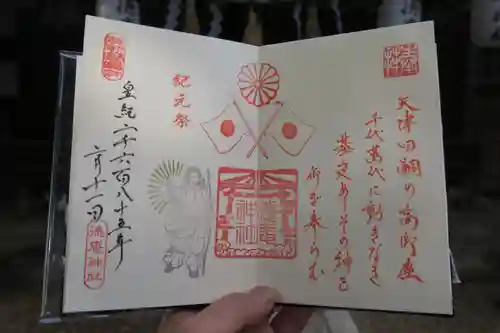 天津日嗣の高御座
千代萬代に動きなき
基定めしその神を
仰ぎ奉らむ
紀元祭
皇紀二千六百八十五年
二月十一日
神社
徳重神社